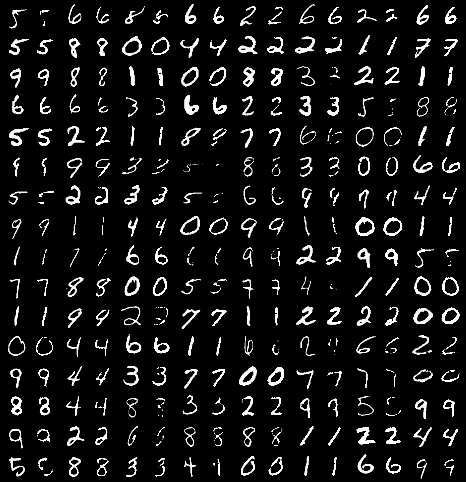 5 5 6 6 8 8 6 6 2 2 6 6 2 2 6 6
5 5 8 8 0 0 4 4 2 2 2 2 1 1 7 7
9 9 8 8 1 1 0 0 8 8 3 2 2 1 1
6 6 6 6 3 3 6 6 2 2 3 3 5 5 8 8
5 5 2 2 1 1 8 8 7 7 6 6 0 0 1 1
9 9 3 3 5 8 8 3 3 0 0 6 6
5 5 2 2 3 3 5 5 6 6 9 9 9 9 4 4
9 9 1 1 4 4 0 0 9 9 1 1 0 0 1 1
1 1 7 7 6 6 9 9 2 2 9 9 5 5
7 7 8 8 0 0 5 5 7 7 4 1 1 0 0
1 1 9 9 2 2 7 7 1 1 2 2 2 2 0 0
0 0 4 4 6 6 1 1 6 6 2 6 6 2 2
9 9 4 4 3 3 7 7 0 0 7 7 7 7 0 0
8 8 4 4 8 8 3 3 2 2 9 9 5 5 9 9
9 9 2 2 6 6 8 8 8 8 1 1 2 2 4 4
5 5 8 8 3 3 4 0 0 1 1 6 6 9 9